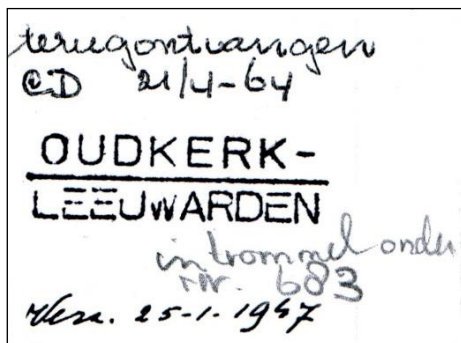 terugontvangen
CD 21/4-64
OUDKERK-
LEEUWARDEN
in trommel onder
nr. 683
Verz. 25-1-1947